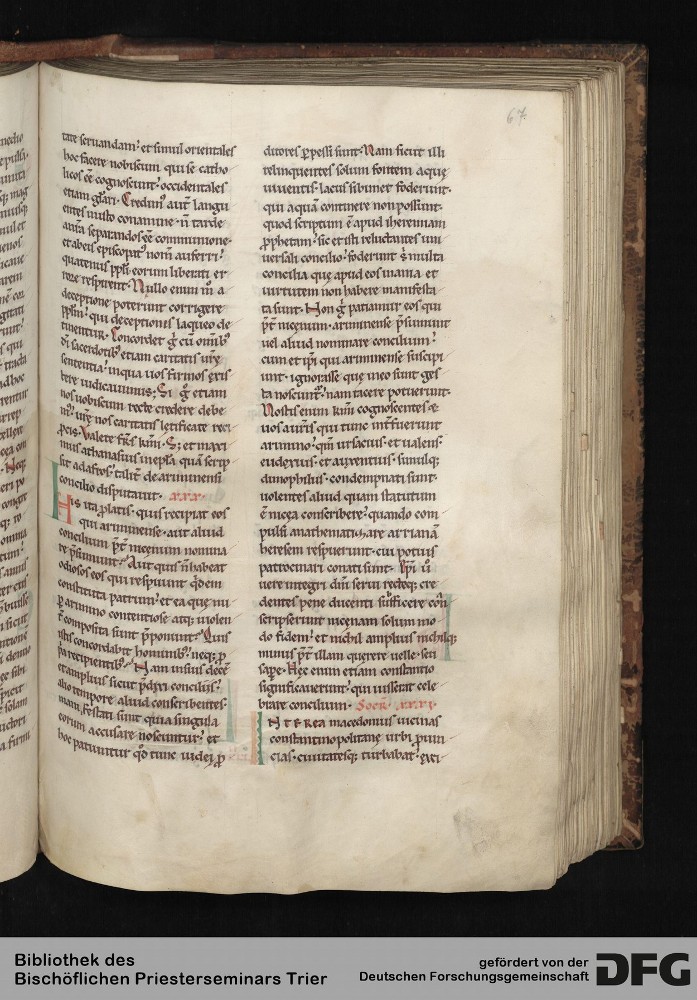 67
tate seruandam. et simul orientales
hoc facere nobiscum qui se catho
licos eē cognoscunt. occidentales
etiam grāri. Credimꝰ autē langu
entes multo conamine. n̄ tarde
separandos eē communione.
et abeis episcopatꝰ nom̄ auferri.
quatenus pp̄li eorum liberati er
rore respirent. Nullo enim m̄ a
deceptione poterunt corrigere
pp̄lm. qui deceptionis laqueo de
tinentur. Concordet g̊ cū om̄ibꝰ
dī sacerdotibꝰ etiam caritatis ur̄e
sententia. inqua uos firmos
iudicauimus; Si g̊ etiam
nos nobiscum recte credere debe
mꝰ. ur̄e nos caritatis letificate reci
ꝓcis. Valete frs̄ km̄i. S; et maxi
mus athanasius inepl̄a quā scrip
sit ad afros. taliť de ariminensi
concilio disputauit. xxx.
His ita ꝓlatis. quis recipiat eos
qui ariminense. aut aliud
concilium p̄ť nicenum nomina
re p̄sumunt. Aut quis n̄ habeat
odiosos eos qui respuunt qd̄em
constituta patrum. et ea que nu
ꝑ arimino contentiose atqꝫ uiolen
ť composita sunt p̄ponunt. Quis
istis concordabit hominibꝰ. neqꝫ
recipientibꝰ. Nam insius decē
et amplius sicut p̄dixi conciliis.
alio tempore aliud conscribentes.
manifestati sunt quia singula
eorum accusare noscuntur. et
hoc patiuntur qd̄ tunc iudei ꝓ
ditores ꝑpessi sunt. Nam sicut illi
relinquentes solum fontem aque
uiuentis. lacus sibimet foderunt.
qui aquā continere non possunt.
quod scriptum ē apud iheremiam
ꝓphetam. sic et isti reluctantes uni
uersali concilio. foderunt s; multa
concilia que apud eos inania et
uirtutem non habere manifesta
ta sunt. Non g̊ patiamur eos qui
p̄ť nicenum. ariminense p̄sumunt
uel aliud nominare concilium.
cum et ip̄i qui ariminense suscipi
unt. ignorasse que ineo sunt ges
ta noscunť. nam tacere potuerunt.
Nostis enim km̄i cognoscentes e
uos auriī qui tunc interfuerunt
arimino. qm̄ ursacius. et ualens
eudexius. et auxentius. simulqꝫ
dimophilus. condempnati sunt.
uolentes aliud quam statutum
ē nicea conscribere. quando com
pulsi anathematizare arrianā
heresem respuerunt. cui potius
patrocinari conati sunt. Ip̄i ů
uere integri dm̄i serui recteqꝫ cre
dentes pene ducenti sufficere con
scripserunt nicenam solum mo
do fidem. et nichil amplius nichilqꝫ
minus p̄ť illam querere uelle. seu
sape. Nec enim etiam constantio
significauerunt. qui iusserat cele
brare concilium. Socr̄. xxxi.
INTEREA macedonius uicinas
constantinopolitane urbi prouin
cias. ciuitatesqꝫ turbabat.
Bibliothek des
Bischöflichen Priesterseminars Trier
gefördert von der
Deutschen Forschungsgemeinschaft
DFG